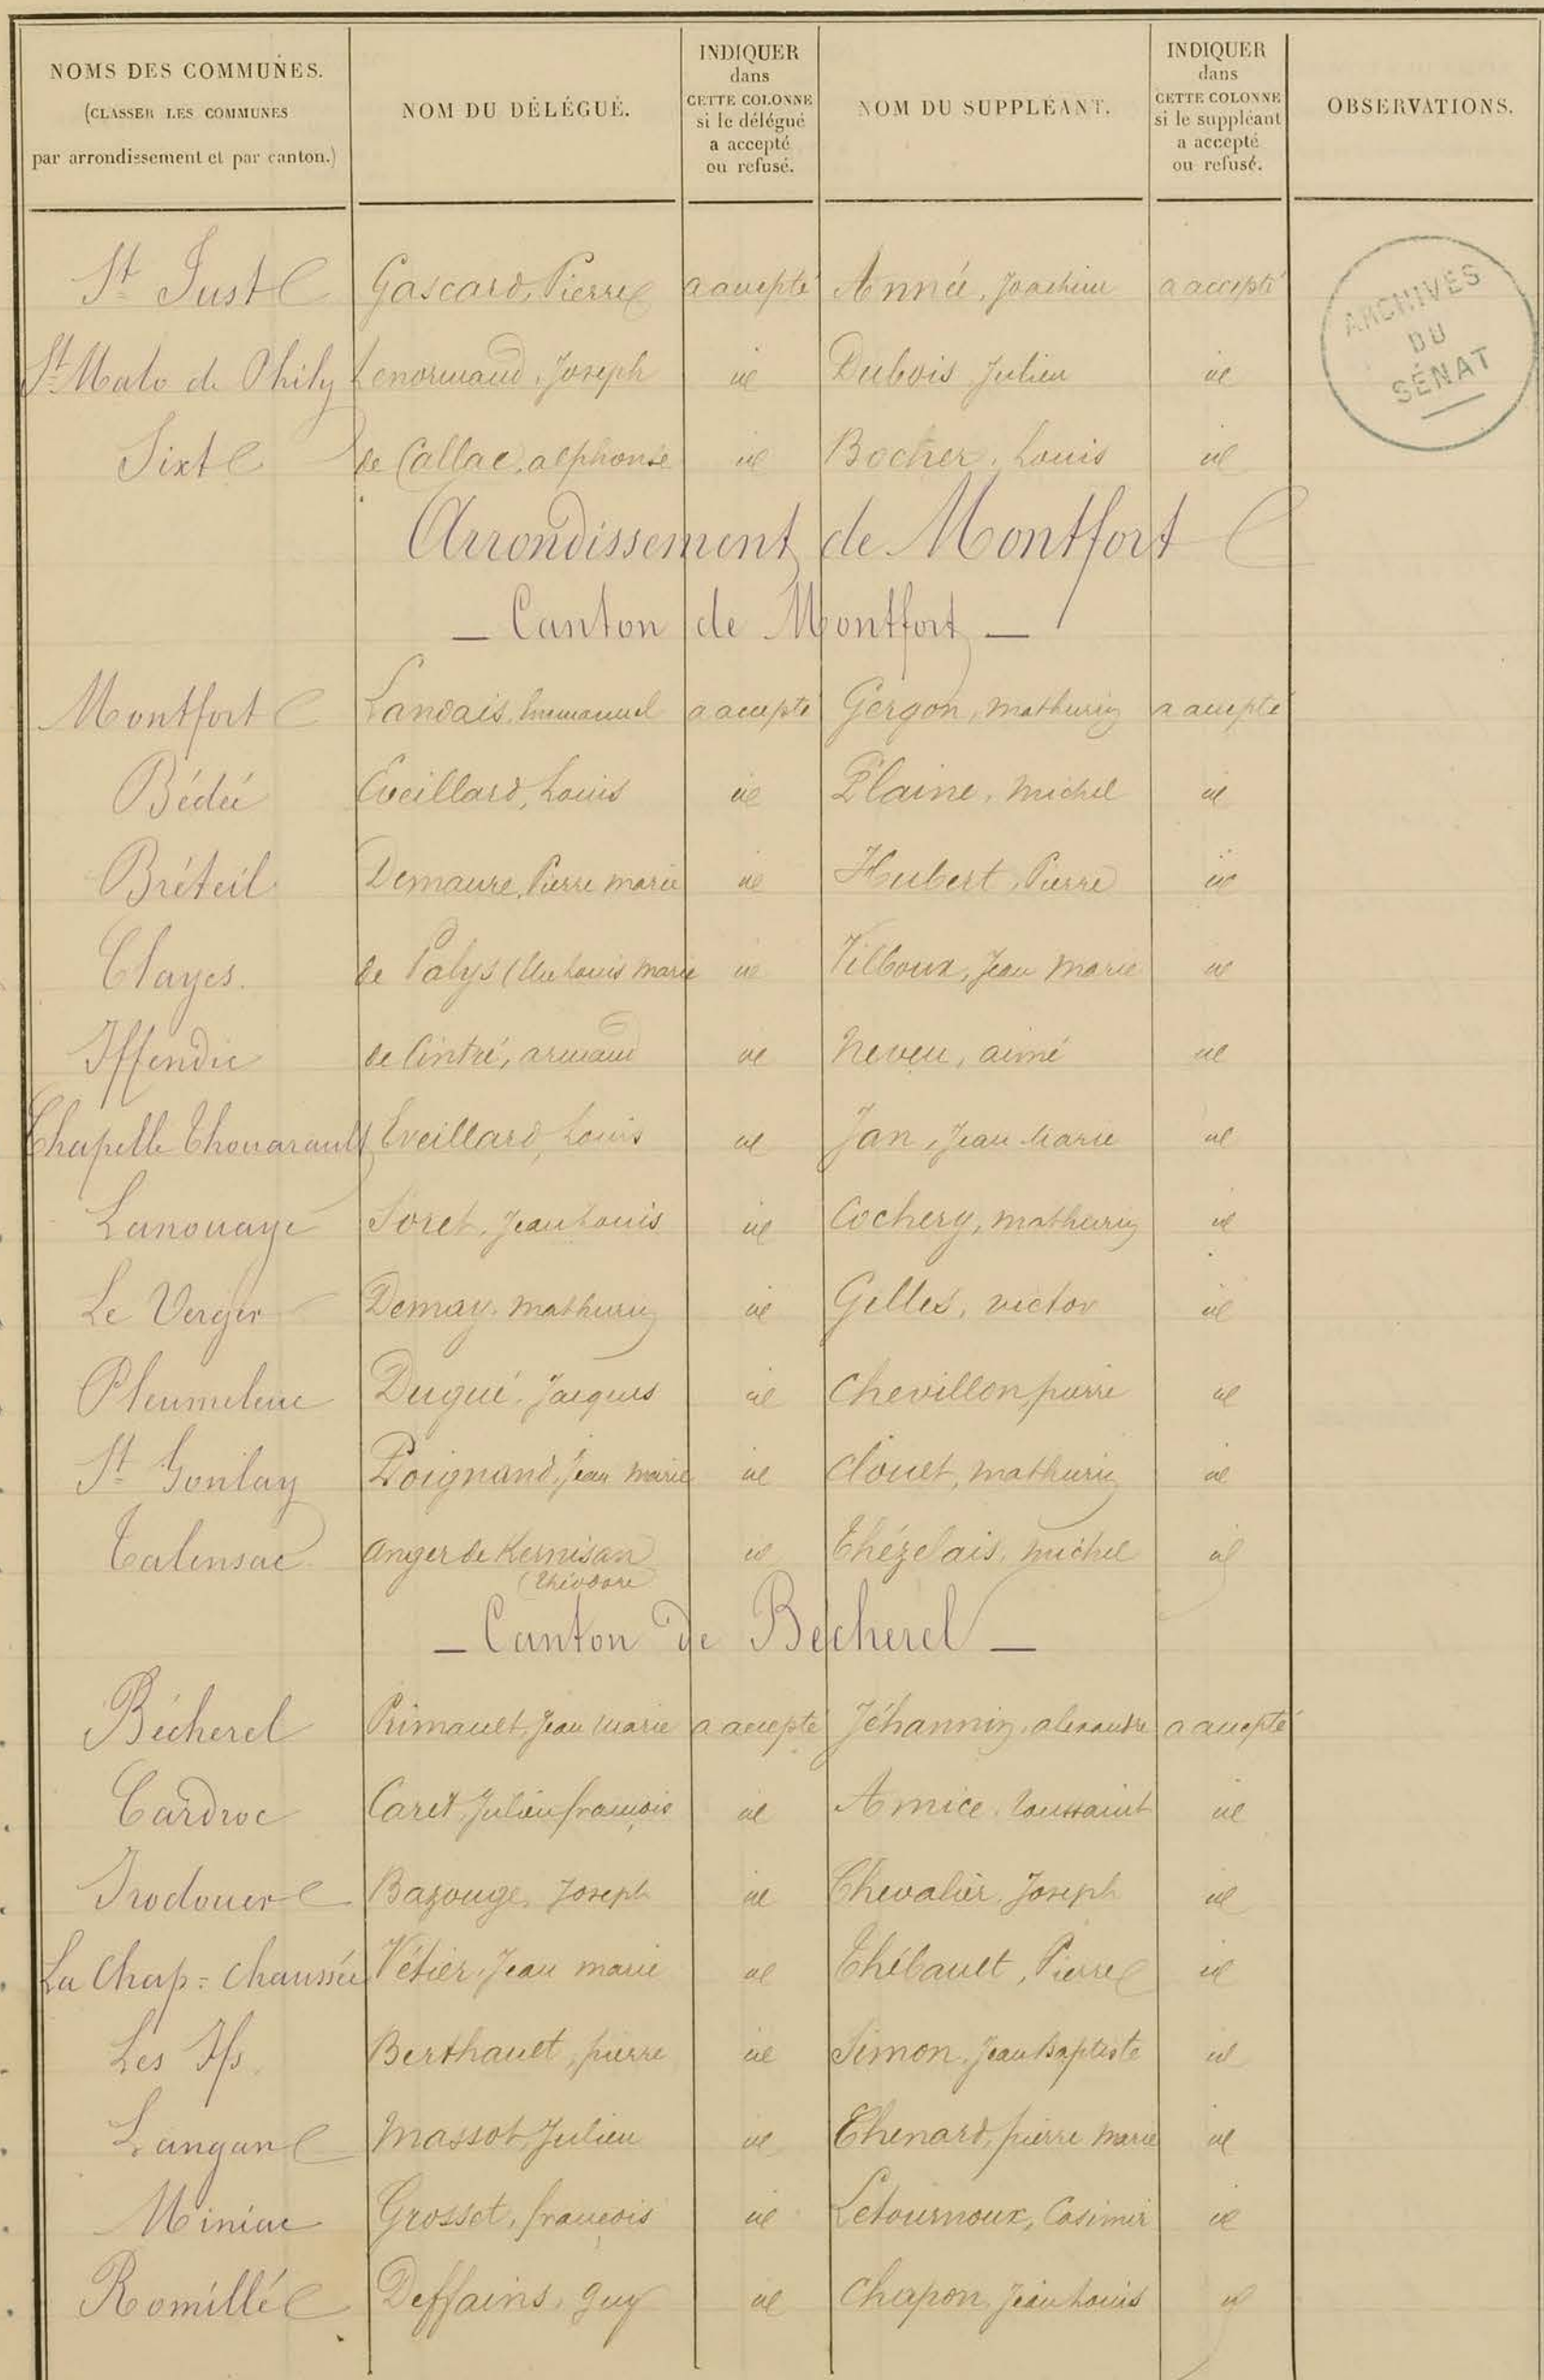 NOMS DES COMMUNES.
(CLASSER LES COMMUNES
par arrondissement et par canton.)
NOM DU DÉLÉGUÉ.
INDIQUER
dans
CETTE COLONNE
si le délégué
a accepté
ou refusé.
NOM DU SUPPLÉANT.
INDIQUER
dans
CETTE COLONNE
si le suppléant
a accepté
ou refusé.
OBSERVATIONS.
ARCHIVES
DU
SÉNAT
St Just Gascard, Pierre a accepté Année, Joachim a accepté
St Malo de Phily Lenormand, Joseph id Dubois Julien id
Sixt de Callac, alphonse id Bocher, Louis id
Arrondissement de Montfort
— Canton de Montfort —
Montfort Landais, Emmanuel a accepté Gergon, mathurin a accepté
Bédée Eveillard, Louis id Plaine, michel id
Bréteil Demaure, Pierre marie id Hubert, Pierre id
Clayes. de Palys Louis marie id Vilboux, Jean Marie id
Iffendic de Cintré, armand id Neveu, aimé id
Chapelle Thouarault Eveillard, Louis id Jan, Jean Marie id
Lanouaye Soret, Jean Louis id Cochery, mathurin id
Le Verger Demay, mathurin id Gelles, victor id
Pleumeleuc Dugué, Jacques id Chevillon pierre id
St Gonlay Poignand, Jean marie id Clouet, mathurin id
Talensac Anger de Kernisan id Thézelais, michel id
(théodore
— Canton de Bécherel —
Bécherel Primault, Jean Marie a accepté Jéhannin, alexandre a accepté
Cardroc Caret, Julien françois id Amice, toussaint id
Irodouer Bazouge, Joseph id Chevalier, Joseph id
La Chap= Chaussée Vétier, Jean marie id Thébault, Pierre id
Les Ifs Berthault, pierre id Simon, Jean Baptiste id
Langan Massot, Julien id Thenard, pierre Marie id
Miniac Grosset, françois id Letournoux, Casimir id
Romillé Deffains, Guy id Chapon, Jean Louis id